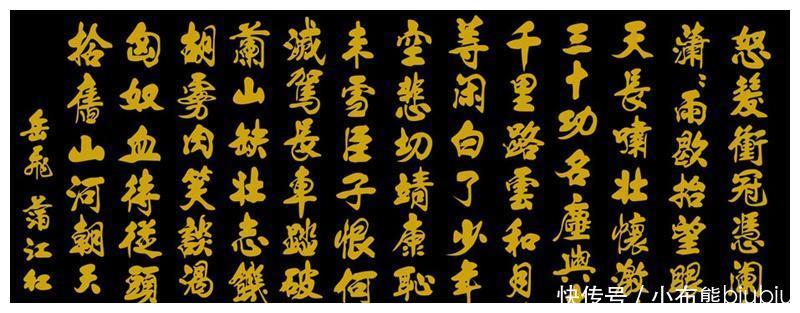 怒髮衝冠憑闌
瀟瀟雨歇抬望眼
天長嘯壯懷激
三十功名塵與
千里路雲和月
等闲白了少年
空悲切靖康恥
未雪臣子恨何
滅駕長車踏破
蘭山缺壯志饑
胡虜肉笑談渴
匈奴血待從頭
拾舊山河朝天
岳飛 滿江红
快传号 / 小布熊biubiu